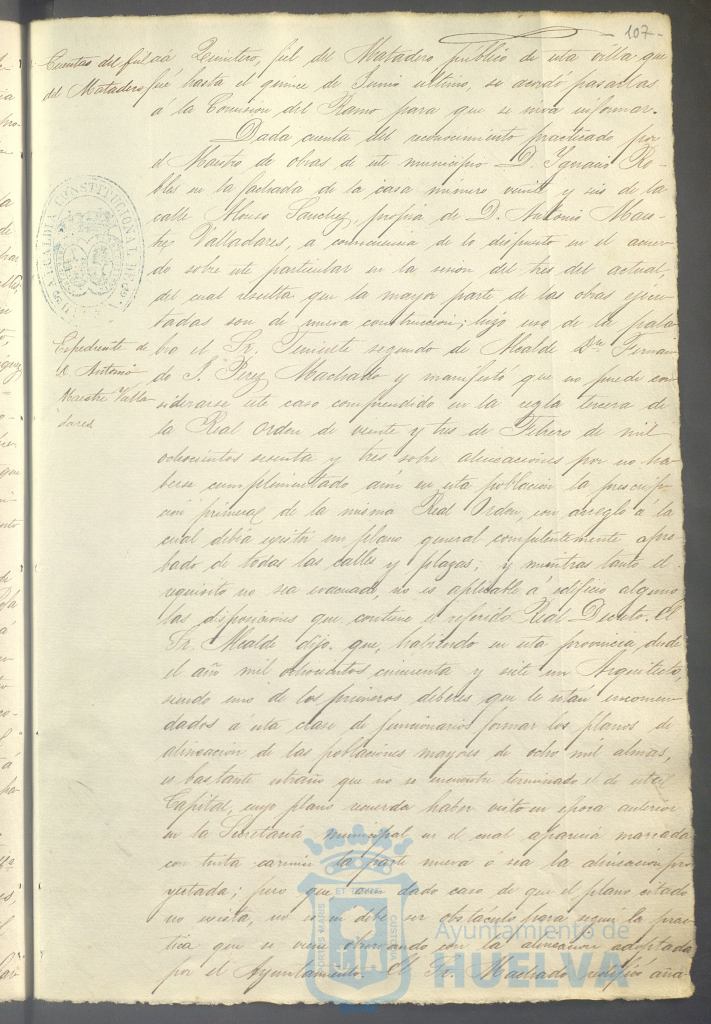 107-
Cuentas del fiel
del Matadero
Quintero, fiel del Matadero público de esta villa que
fué hasta el quince de Junio ultimo, se acordó pasarlas
á la Comision del Ramo para que se sirva informar.
Dada cuenta del reconocimiento practicado por
el Maestro de obras de este municipio D. Ygnacio Ro-
bles en la fachada de la casa numero veinte y seis de la
calle Alonso Sanchez, propia de D. Antonio Maes-
tre Valladares, a consecuencia de lo dispuesto en el acuer-
do sobre este particular en la sesion del tres del actual,
del cual resulta que la mayor parte de las obras ejecu-
tadas son de nueva construccion; hizo uso de la pala-
bra el Sr. Teniente segundo de Alcalde Dn Fernan
do J. Perez Machado y manifestó que no puede con
siderarse este caso comprendido en la regla tercera de
la Real orden de veinte y tres de Febrero de mil
ochocientos sesenta y tres sobre alineaciones por no ha-
berse cumplimentado aun en esta poblacion la prescrip-
cion primera de la misma Real Orden, con arreglo á la
cual debia existir un plano general competentemente apro-
bado de todas las calles y plazas; y mientras tanto el
requisito no sea evacuado, no es aplicable á edificio alguno
las disposiciones que contiene el referido Real Decreto. El
Sr. Alcalde dijo. que, habiendo en esta provincia, desde
el año mil ochocientos cincuenta y siete un Arquitecto,
siendo uno de los primeros deberes que le estan encomen
dados á esta clase de funcionarios formar los planos de
alineacion de las poblaciones mayores de ocho mil almas,
es bastante estraño que no se encuentre terminado el de esta
Capital, cuyo plano recuerda haber visto en época anterior
en la Secretaria municipal, en el cual aparecia marcada
con tinta carmin la parte nueva ó sea la alineacion pro
yectada; pero que, aun dado caso de que el plano citado
no exista, no debe ser obstáculo para seguir la prac
tica que se viene observando con la alineacion adoptada
por el Ayuntamiento. El Sr. Machado rectificó aña-
Espediente de
D. Antonio
Maestre Valla
dares
ALCALDIA CONSTITUCIONAL DE
Ayuntamiento de
HUELVA